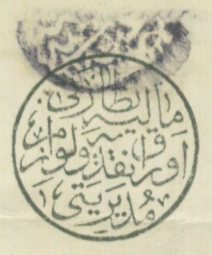 ماليه نظارتى
اوراق نقديه ولوازم
مديريتى